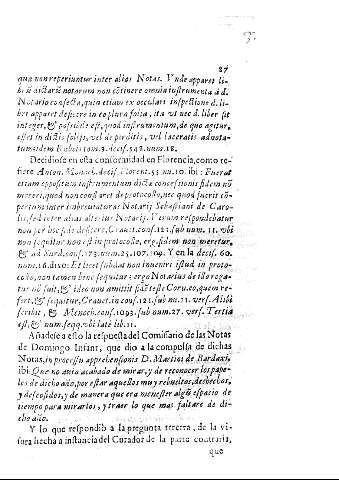 27
qua non reperiuntur inter alias Notas. Vnde apparet li-
brũ dictarũ notarum non cõtinere omnia instrumenta á d.
Notario confecta, quin etiam ex oculari inspectione d. li-
bri apparet deficere in eo plura folia, ita vt nec d. liber sit
integer, & possibile est, quod instrumentum, de quo agitur,
esset in dictis folijs, vel de perditis, vel laceratis adnota-
tum idem tom. 3. decis. 542. num. 18.
Decidiose en esta conformidad en Florencia, como re-
fiere Anton. Monach. decis. Florent. 55. nu. 10. ibi: Fuerat
etiam oppositum instrumentum dictæ concessionis fidem nõ
mereri, quod non constaret de protocollo, nec quod fuerit
pertum inter imbreuiaturas Notarij Sebastiani de Caro-
lis, sed inter alias alterius Notarij. Verum respondebatur
non per hoc fide deficere, Crauet. cons. 121. sub num. 11. vbi
non sequitur non est in protocollo, ergo fidem non meretur,
& ad Surd. cons. 273. num. 25. 107. 109. Y en la decis. 60.
num. 16. dixo: Et licet subdat non inueniri istud in proto-
colo, non tamen bene sequitur: ergo Notarius de illo roga-
tus nõ fuit, & ideo non amittit fidẽ teste Coru.co, quem re-
fert, & sequitur, Crauet. in cons. 121. sub nu. 11. vers. Alibi
scribit, & Menoch. cons. 1093. sub num. 27. vers. Tertia
est, & num. seqq. vbi late lib. 11.
Añadese a esto la respuesta del Comissario de las Notas
de Domingo Infant, que dio a la compulsa de dichas
Notas, in processu apprehensionis D. Martini de Bardaxi,
ibi: Que no auia acabado de mirar, y de reconocer los pape-
les de dicho año, por estar aquellos muy rebueltos, deshechos,
y descosidos, y de manera que era menester algũ espacio de
tiempo para mirarlos, y traer lo que mas faltare de di-
cho año.
Y lo que respondió a la pregunta tercera, de la vi-
sura hecha a instancia del Curador de la parte contraria,
que